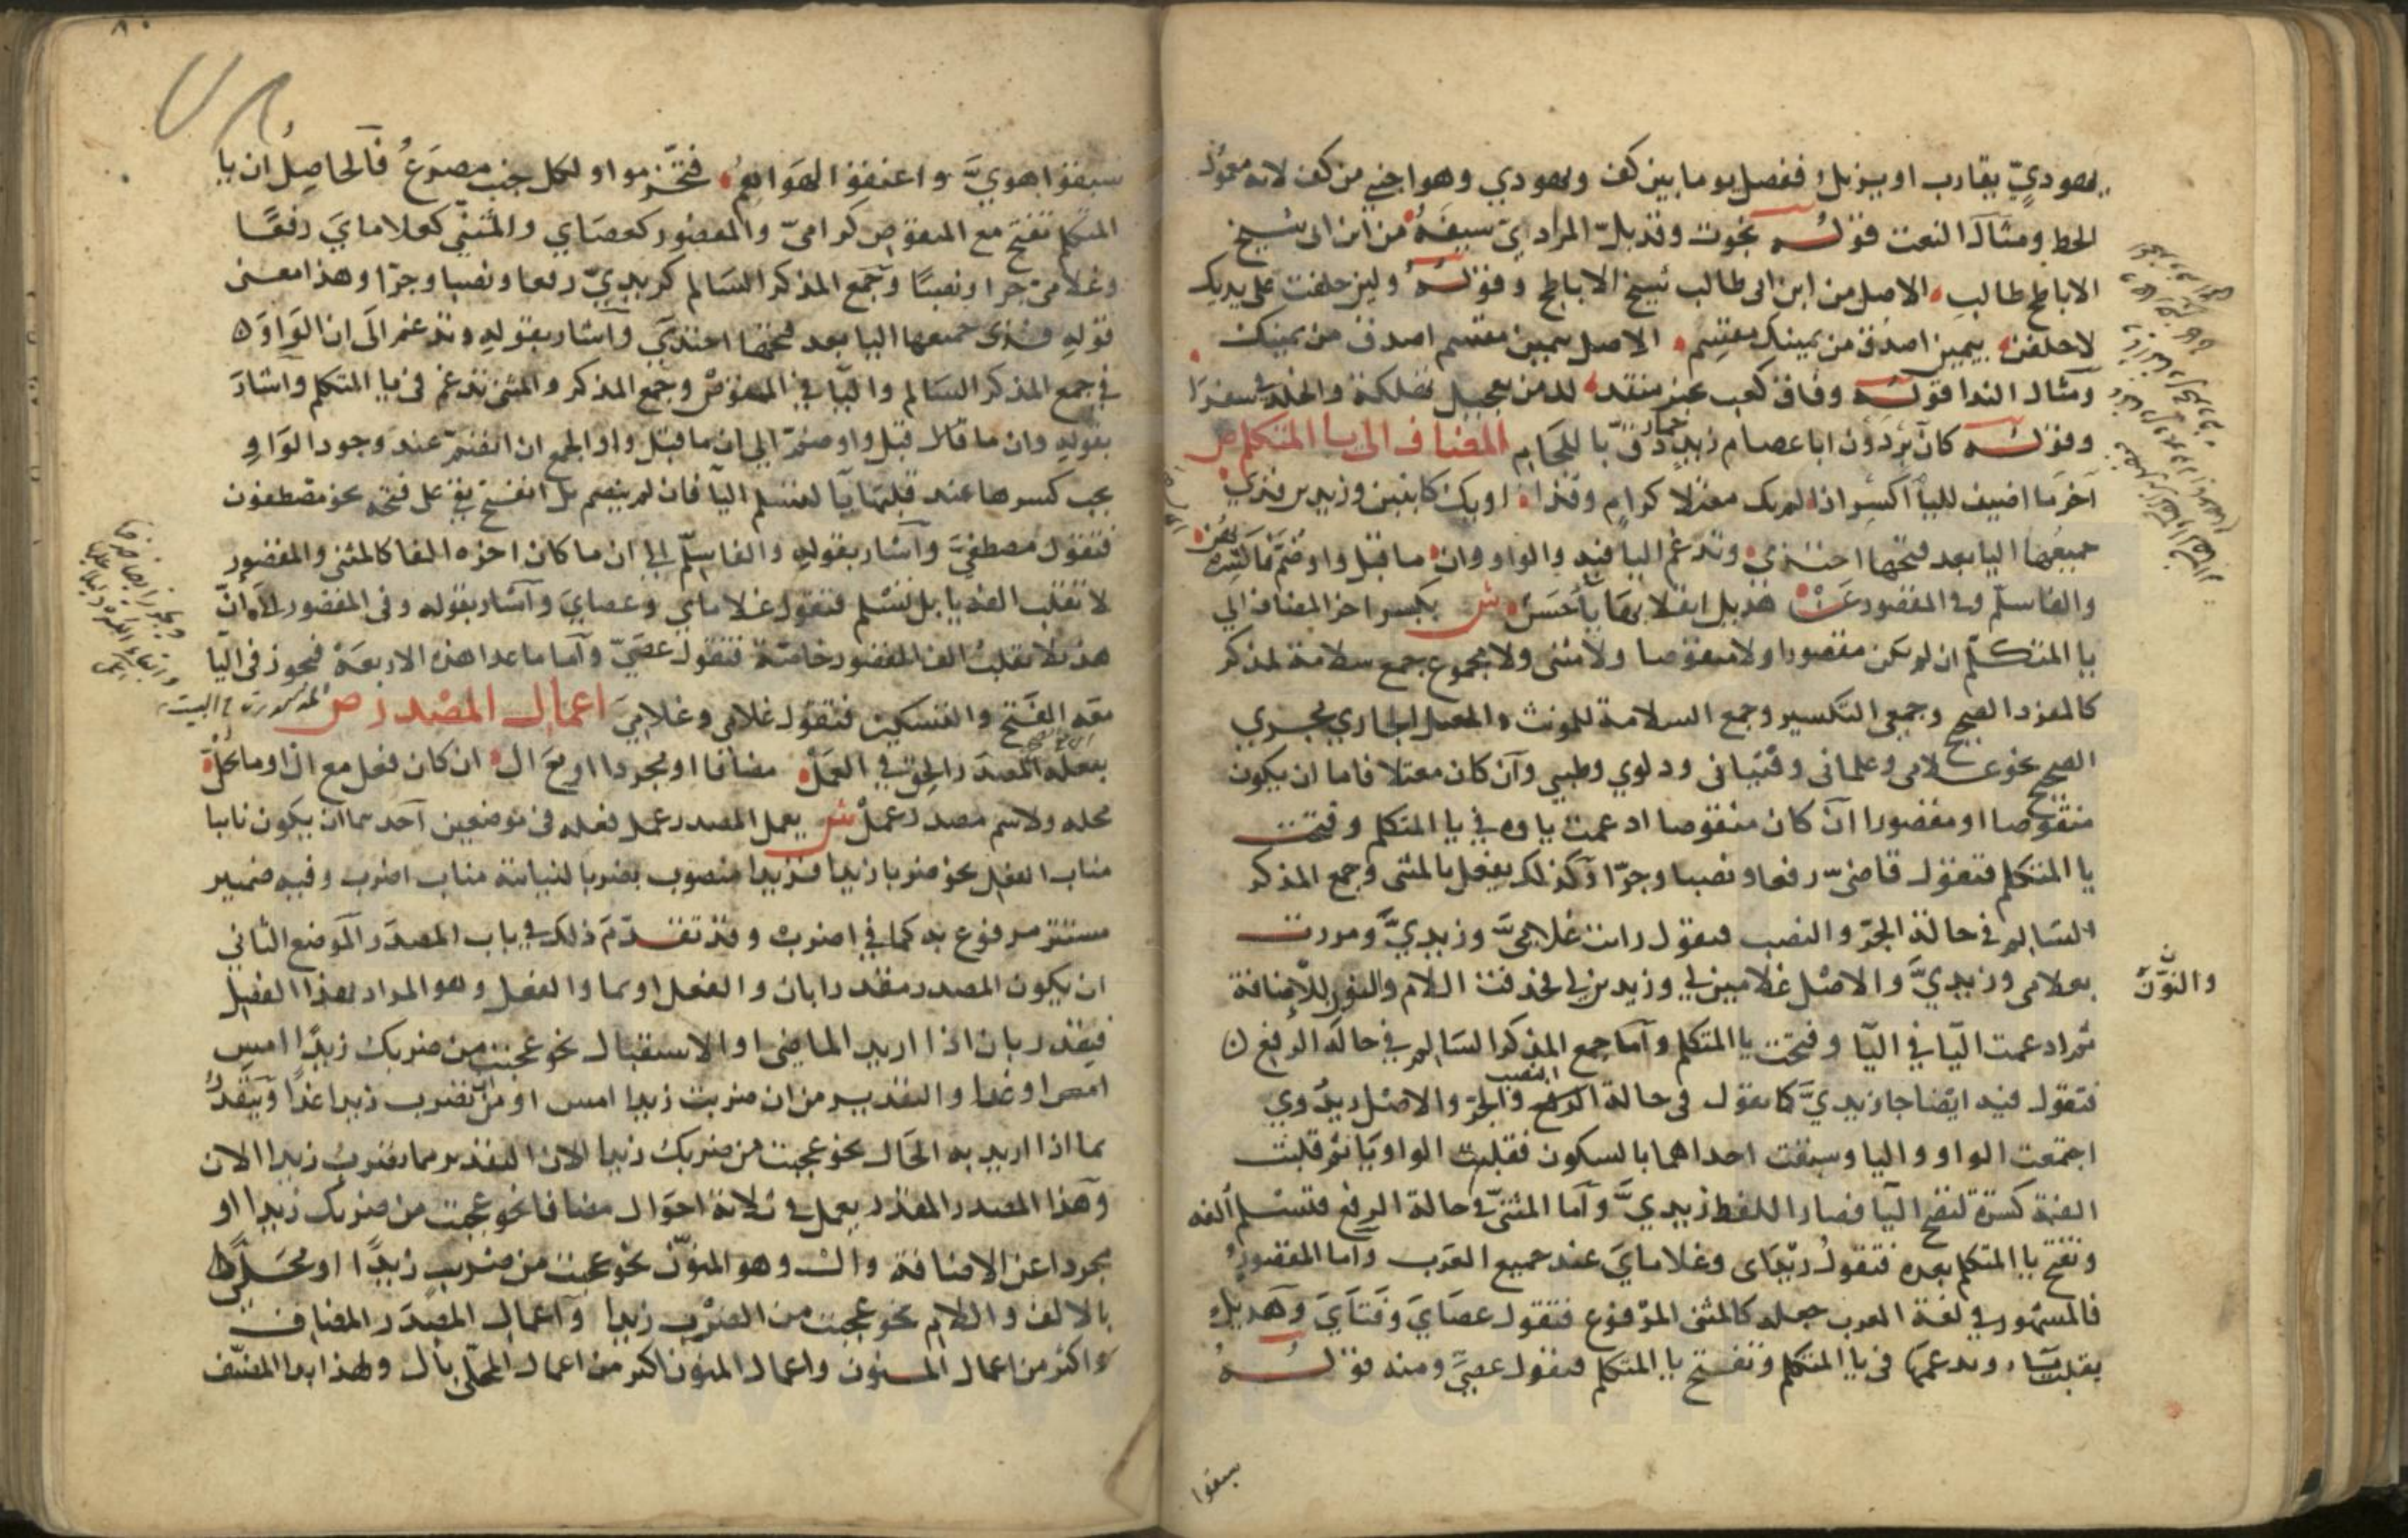 يهودي يقارب او يزيل ففصل بيوما بين كف ويهودي وهو اجنبي من كف لانه معمول
لخط ومثال النعت قوله نجوت وقد بل المرادي سيفه من ابن ابي شيخ
الاباطح طالب الاصل من ابن ابي طالب شيخ الاباطح وقوله ولين حلفت على يديك
لاحلفن بيمين اصدق من يمينك مقسم الاصل بيمين مقسم اصدق من يمينك
ومثال الندا قوله وفاق كعب بجير منقذ لك من تعجيل تهلكة والخلد في سقرا
وقوله كان برذون ابا عصام زيد حمار دق باللجام المضاف الى يا المتكلم ص
آخر ما اضيف لليا اكسر اذا لم يك معتلا كرام وقذا او يك كابنين وزيدين فذي
جميعها اليا بعد فتحها احتذي وتدغم اليا فيه والواو وان ما قبل واو ضم فاكسره يهن
والفا سلم وفي المقصور عن هذيل انقلابها يا حسن ش يكسر اخر المضاف الي
يا المتكلم ان لم يكن مقصورا ولا منقوصا ولا مثنى ولا مجموع جمع سلامة لمذكر
كالمفرد الصحيح وجمعي التكسير وجمع السلامة للمونث والمعتل الجاري مجري
الصحيح نحو غلامي وغلماني وفتياتي ودلوي وظبيي وان كان معتلا فاما ان يكون
منقوصا او مقصورا ان كان منقوصا ادغمت ياوه في يا المتكلم وفتحت
يا المتكلم فتقول قاضي رفعا ونصبا وجرا وكذلك يفعل بالمثنى وجمع المذكر
السالم في حالة الجر والنصب فتقول رايت غلامي وزيدي ومررت
بغلامي وزيدي والاصل غلامين لي وزيدين لي فحذفت اللام والنون للاضافة
والنون
ثم ادغمت اليا في اليا وفتحت يا المتكلم واما جمع المذكر السالم في حالة الرفع
فتقول فيه ايضا جا زيدي كما تقول في حالة النصب والجر والاصل زيدوي
اجتمعت الواو واليا وسبقت احداهما بالسكون فقلبت الواو يا ثم قلبت
الضمة كسرة لتصح اليا فصار اللفظ زيدي واما المثنى في حالة الرفع فتسلم الفه
وتفتح يا المتكلم بعده فتقول زيداي وغلاماي عند جميع العرب واما المقصور
فالمشهور في لغة العرب جعله كالمثنى المرفوع فتقول عصاي وفتاي وهذيل
بقلبها ياء وتدغمها في يا المتكلم وتفتح يا المتكلم فتقول عصي ومنه قوله
سبقوا
سبقوا هوي واعنقوا لهواهم فتخرموا ولكل جنب مصرع فالحاصل ان يا
المتكلم تفتح مع المنقوص كرامي والمقصور كعصاي والمثنى كغلاماي رفعا
وغلامي جرا ونصبا وجمع المذكر السالم كزيدي رفعا ونصبا وجرا وهذا معنى
قوله فذي جميعها اليا بعد فتحها احتذي واشار بقوله وتدغم الى ان الواو
في جمع المذكر السالم واليا في المنقوص وجمع المذكر والمثنى تدغم في يا المتكلم واشار
بقوله وان ما قال قبل واو ضم الي ان ما قبل واو الجمع ان انضم عند وجود الواو
يجب كسرها عند قلبها يا لتسلم اليا فان لم ينضم بل انفتح بقي على فتحه نحو مصطفون
فتقول مصطفي واشار بقوله والفا سلم الي ان ما كان اخره الفا كالمثنى والمقصور
لا تقلب الفه يا بل تسلم فتقول غلاماي وعصاي واشار بقوله وفي المقصور الى ان
هذيلا تقلب الف المقصور خاصة فتقول عصي واما ما عدا هذه الاربعة فيجوز في اليا
معه الفتح والتسكين فتقول غلامي وغلامي اعمال المصدر ص
بفعله المصدر الحق في العمل مضافا او مجردا او مع ال ان كان فعل مع ان او ما يحل
محله ولاسم مصدر عمل ش يعمل المصدر عمل فعله في موضعين احدهما ان يكون نايبا
مناب الفعل نحو ضربا زيدا فزيدا منصوب بضربا لنيابته مناب اضرب وفيه ضمير
مستتر مرفوع به كما في اضرب وقد تقدم ذلك في باب المصدر الموضع الثاني
ان يكون المصدر مقدرا بان والفعل او بما والفعل وهو المراد بهذا الفصل
فيقدر بان اذا اريد الماضي او الاستقبال نحو عجبت من ضربك زيدا امس
او غدا والتقدير من ان ضربت زيدا امس او من ان تضرب زيدا غدا ويقدر
بما اذا اريد به الحال نحو عجبت من ضربك زيدا الان التقدير مما تضرب زيدا الان
وهذا المصدر المقدر يعمل في ثلاثة احوال مضافا نحو عجبت من ضربك زيدا او
مجردا عن الاضافة وال وهو المنون نحو عجبت من ضرب زيدا او محلى
بالالف واللام نحو عجبت من الضرب زيدا واعمال المصدر المضاف
اكثر من اعمال المنون واعمال المنون اكثر من اعمال المحلى بال ولهذا بدا المصنف